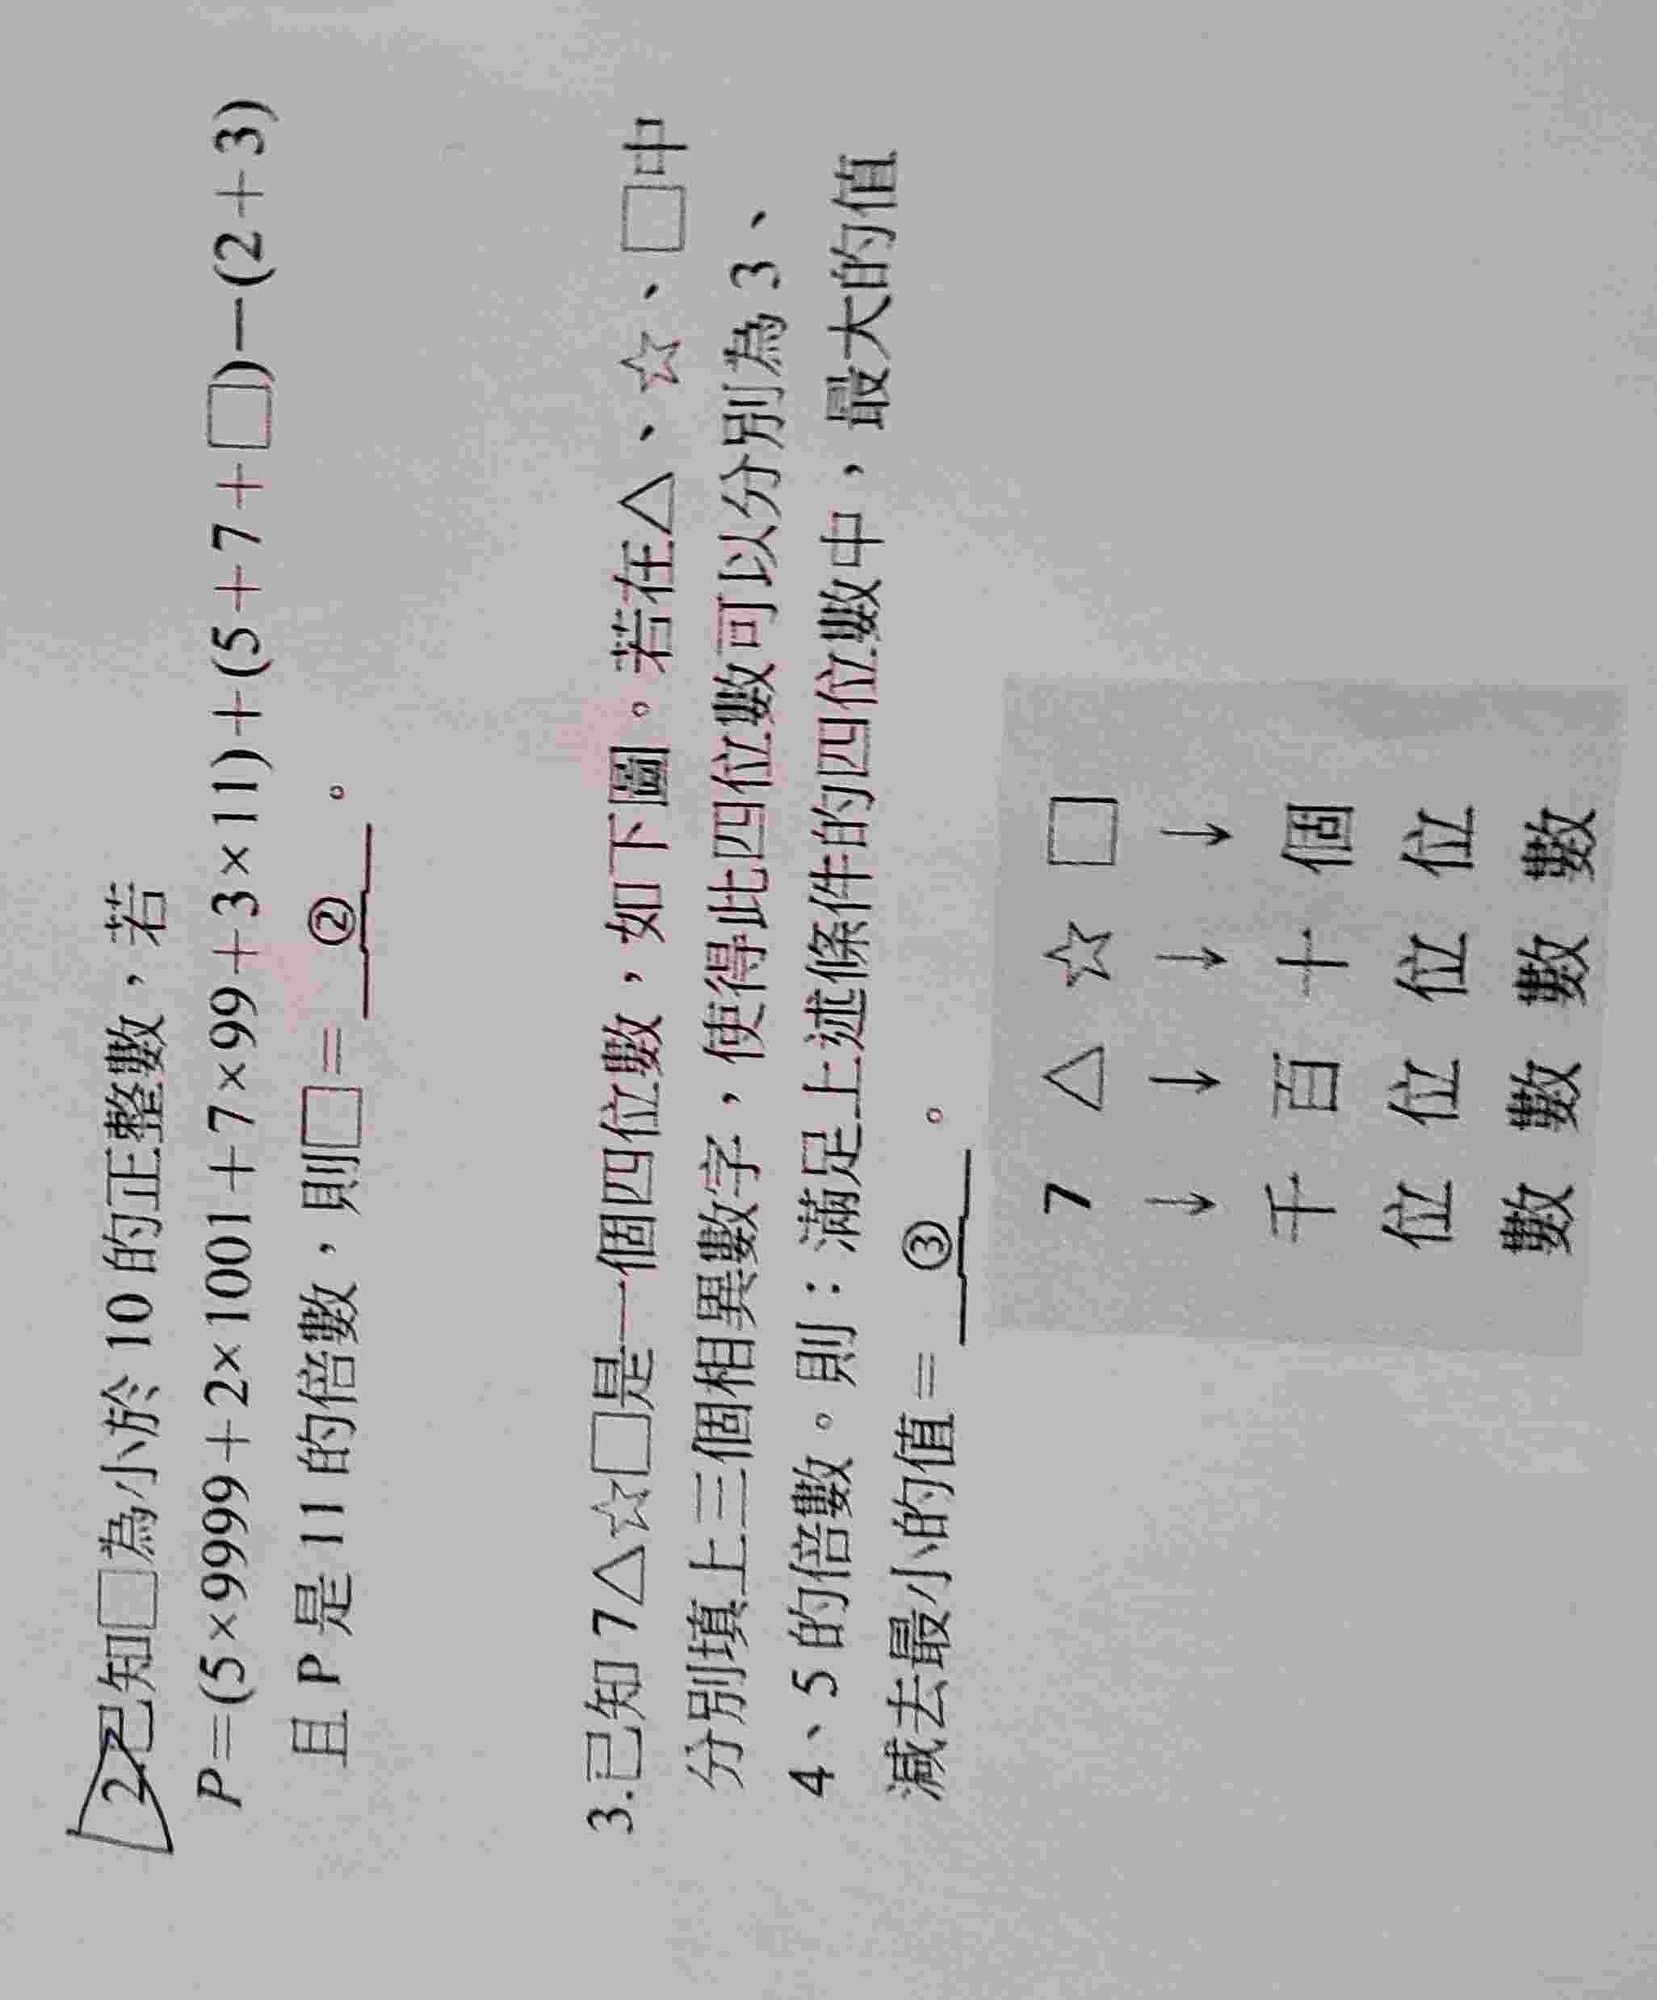 2.已知□為小於 10 的正整數，若
P=(5×9999+2×1001+7×99+3×11)+(5+7+□)−(2+3)
且 P 是 11 的倍數，則□= ② 。
3.已知 7△☆□是一個四位數，如下圖。若在△、☆、□中
分別填上三個相異數字，使得此四位數可以分別為 3、
4、5 的倍數。則：滿足上述條件的四位數中，最大的值
減去最小的值= ③ 。
7 △ ☆ □
↓ ↓ ↓ ↓
千 百 十 個
位 位 位 位
數 數 數 數